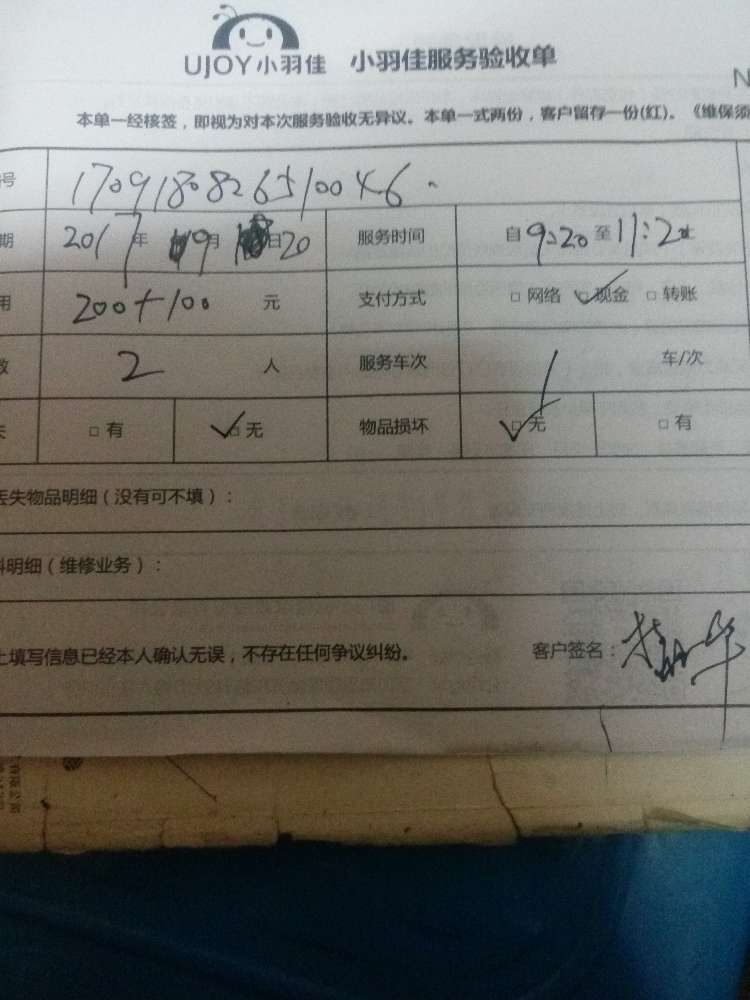 UJOY小羽佳 小羽佳服务验收单
N
本单一经核签，即视为对本次服务验收无异议。本单一式两份，客户留存一份(红)。《维保须
号 1709180826510046
期 2017年 09月 日20 服务时间 自9:20至11:20止
用 200+100 元 支付方式 □网络 ☑现金 □转账
数 2 人 服务车次 1 车/次
失 □有 ☑无 物品损坏 ☑无 □有
丢失物品明细（没有可不填）：
料明细（维修业务）：
上填写信息已经本人确认无误，不存在任何争议纠纷。 客户签名：